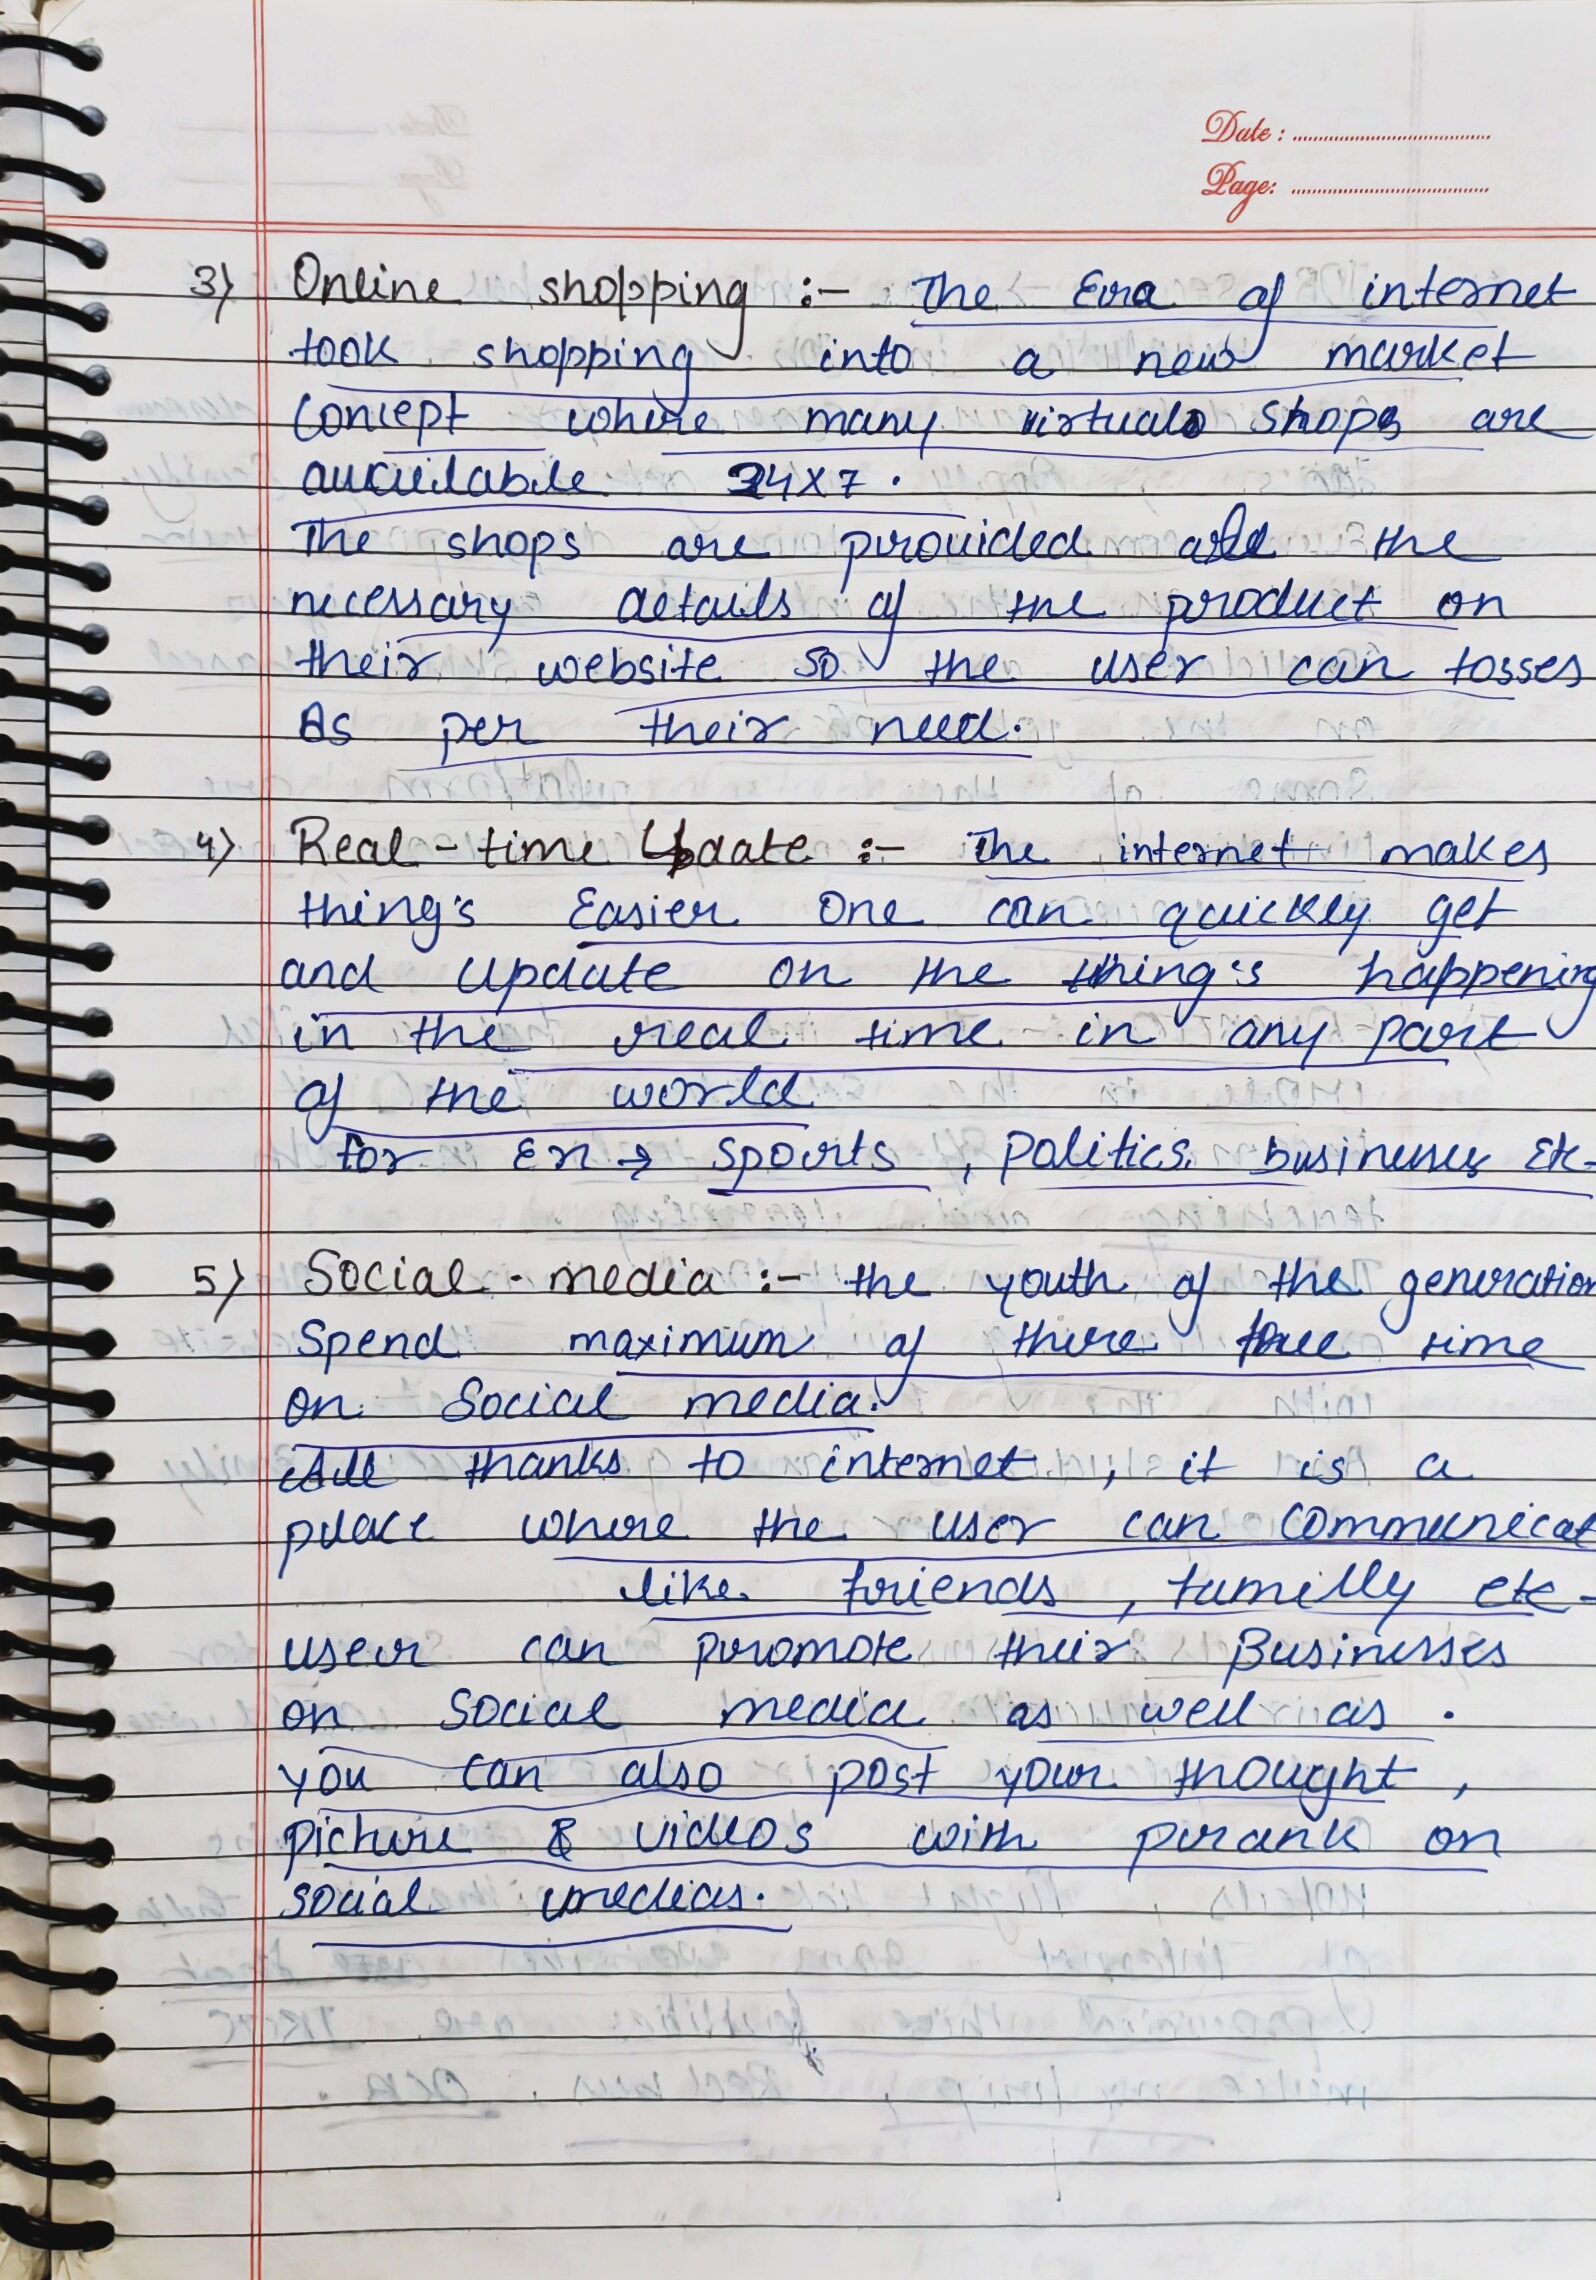 Date :
Page:
3) Online shopping :- The Era of internet
took shopping into a new market
concept where many virtual shops are
available 24x7.
The shops are provided all the
necessary details of the product on
their website so the user can tosses
As per their need.
4) Real-time Update :- The internet makes
thing's Easier One can quickly get
and Update on the thing's happening
in the real time in any part
of the world
for Ex → sports, politics, businesses Etc-
5) Social-media :- the youth of the generation
Spend maximum of there free time
on Social media.
All thanks to internet, it is a
place where the user can Communicat
like friends, familly etc-
user can promote their Businesses
on social media as well as.
you can also post your thought,
picture & videos with prank on
social medias.